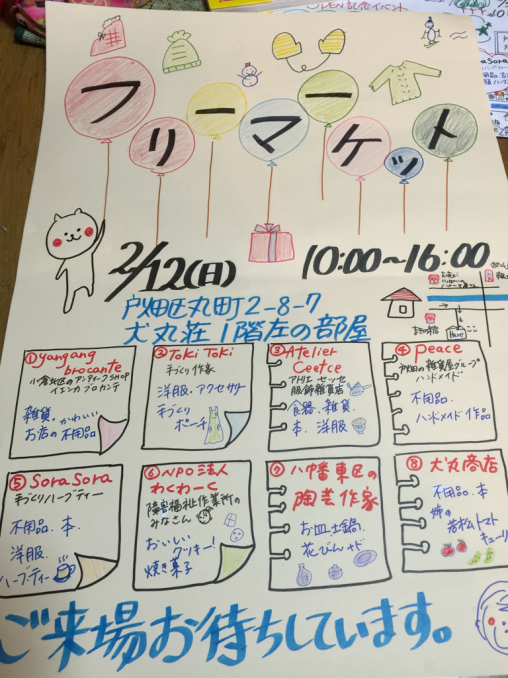 OPEN記念イベント
フリーマーケット
2/12(日) 10:00~16:00
戸畑区丸町2-8-7
犬丸荘1階左の部屋
①yangang
brocante
小倉北区のアンティークshop
雑貨、かわいい
お店の不用品
②Toki Toki
手づくり作家
洋服・アクセサリー
手づくり
ポーチ
③Atelier
アトリエ セッセ
服飾雑貨店
食器、雑貨、
本、洋服
④peace
戸畑の雑貨屋グループ
ハンドメイド
不用品、
ハンドメイド作品
⑤SoraSora
手づくりハーブティー
不用品、本、
洋服、
ハーブティー
⑥NPO法人
わくわーく
障害福祉作業所の
みなさん
おいしい
クッキー!
焼き菓子
⑦八幡東区の
陶芸作家
お皿、土鍋、
花びん
⑧犬丸商店
不用品、本
トマト
ご来場お待ちしています。